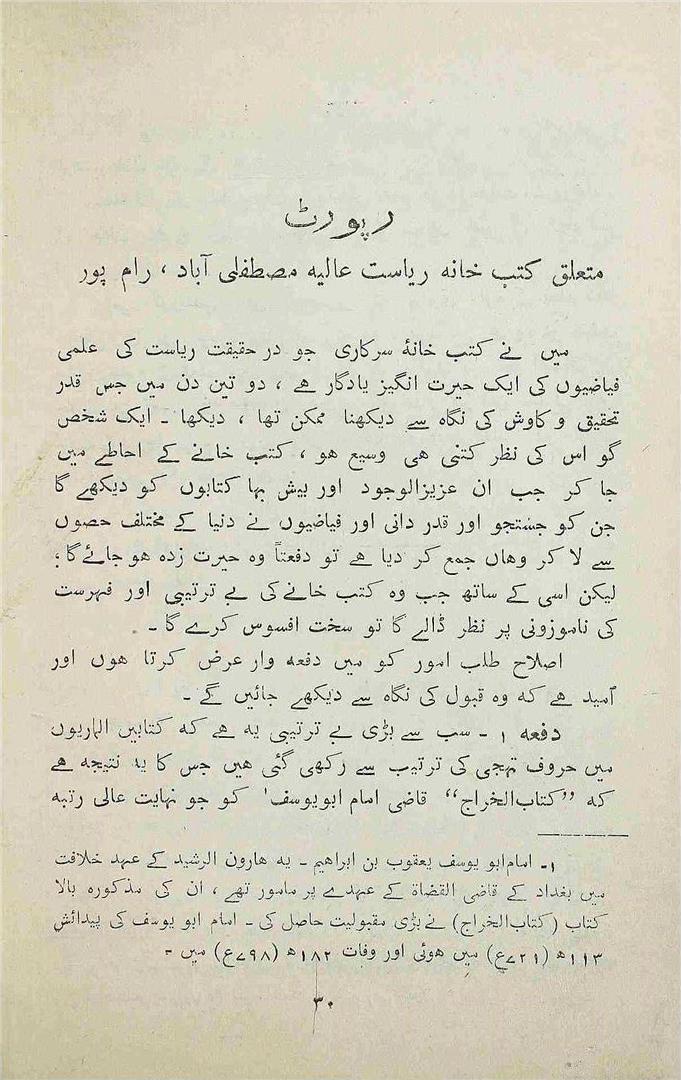 رپورٹ
متعلق کتب خانہ ریاست عالیہ مصطفلی آباد ، رام پور
میں نے کتب خانۂ سرکاری جو در حقیقت ریاست کی علمی
فیاضیوں کی ایک حیرت انگیز یادگار ہے ، دو تین دن میں جس قدر
تحقیق و کاوش کی نگاہ سے دیکھنا ممکن تھا ، دیکھا ۔ ایک شخص
گو اس کی نظر کتنی ھی وسیع ھو ، کتب خانے کے احاطے میں
جا کر جب ان عزیزالوجود اور بیش بہا کتابوں کو دیکھے گا
جن کو جستجو اور قدر دانی اور فیاضیوں نے دنیا کے مختلف حصوں
سے لا کر وھاں جمع کر دیا ہے تو دفعتاً وہ حیرت زدہ ھو جائے گا ؛
لیکن اسی کے ساتھ جب وہ کتب خانے کی بے ترتیبی اور فہرست
کی ناموزونی پر نظر ڈالے گا تو سخت افسوس کرے گا ۔
اصلاح طلب امور کو میں دفعہ وار عرض کرتا ھوں اور
اُمید ہے کہ وہ قبول کی نگاہ سے دیکھے جائیں گے ۔
دفعہ ۱ ۔ سب سے بڑی بے ترتیبی یہ ہے کہ کتابیں الماریوں
میں حروف تہجی کی ترتیب سے رکھی گئی ھیں جس کا یہ نتیجہ ہے
کہ ”کتاب الخراج“ قاضی امام ابو یوسف' کو جو نہایت عالی رتبہ
۱۔ امام ابو یوسف یعقوب بن ابراھیم ۔ یہ ھارون الرشید کے عہد خلافت
میں بغداد کے قاضی القضاۃ کے عہدے پر مامور تھے ، ان کی مذکورہ بالا
کتاب (کتاب الخراج) نے بڑی مقبولیت حاصل کی ۔ امام ابو یوسف کی پیدائش
۱۱۳ھ (۷۲۱ع) میں ھوئی اور وفات ۱۸۲ھ (۷۹۸ع) میں ۔
۳۰